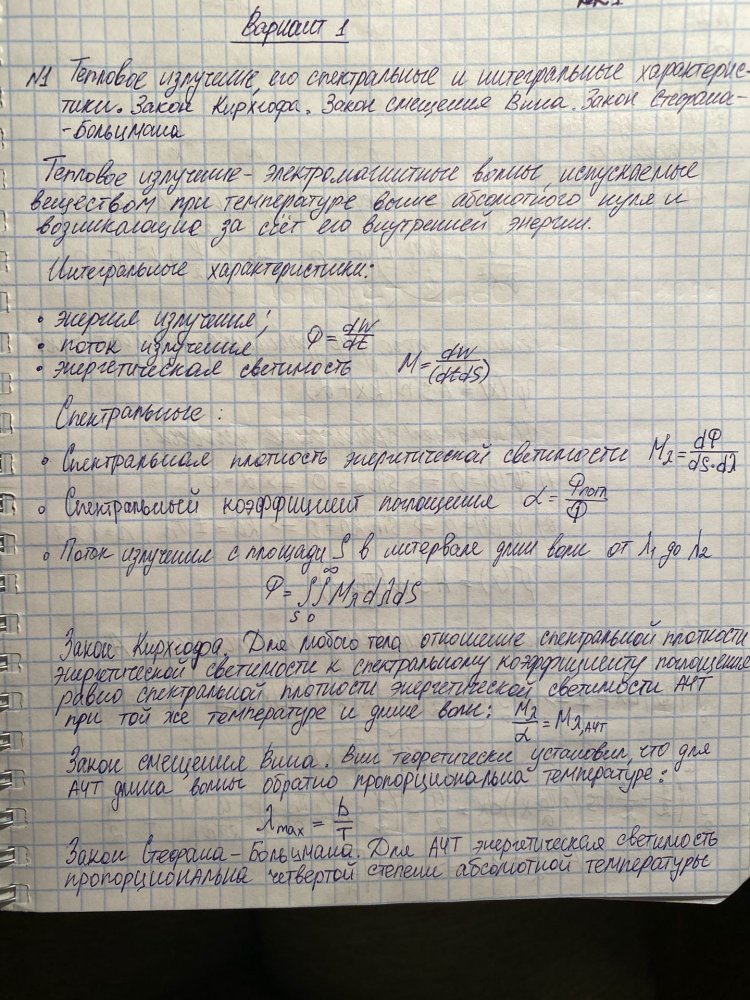 Вариант 1
N1 Тепловое излучение, его спектральные и интегральные характерис-
тики. Закон Кирхгофа. Закон смещения Вина. Закон Стефана-
-Больцмана
Тепловое излучение - электромагнитные волны, испускаемые
веществом при температуре выше абсолютного нуля и
возникающие за счёт его внутренней энергии.
Интегральные характеристики:
• энергия излучения;
• поток излучения Φ = dW/dt
• энергетическая светимость M = dW/(dtdS)
Спектральные:
• Спектральная плотность энергетической светимости Mλ = dΦ/dS·dλ
• Спектральный коэффициент поглощения α = Φпогл/Φ
• Поток излучения с площади S в интервале длин волн от λ1 до λ2
Φ = ∫S ∫0^∞ Mλ dλ dS
Закон Кирхгофа. Для любого тела отношение спектральной плотности
энергетической светимости к спектральному коэффициенту поглощения
равно спектральной плотности энергетической светимости АЧТ
при той же температуре и длине волн: Mλ/α = Mλ,АЧТ
Закон смещения Вина. Вин теоретически установил, что для
АЧТ длина волны обратно пропорциональна температуре:
λmax = b/T
Закон Стефана-Больцмана. Для АЧТ энергетическая светимость
пропорциональна четвертой степени абсолютной температуры